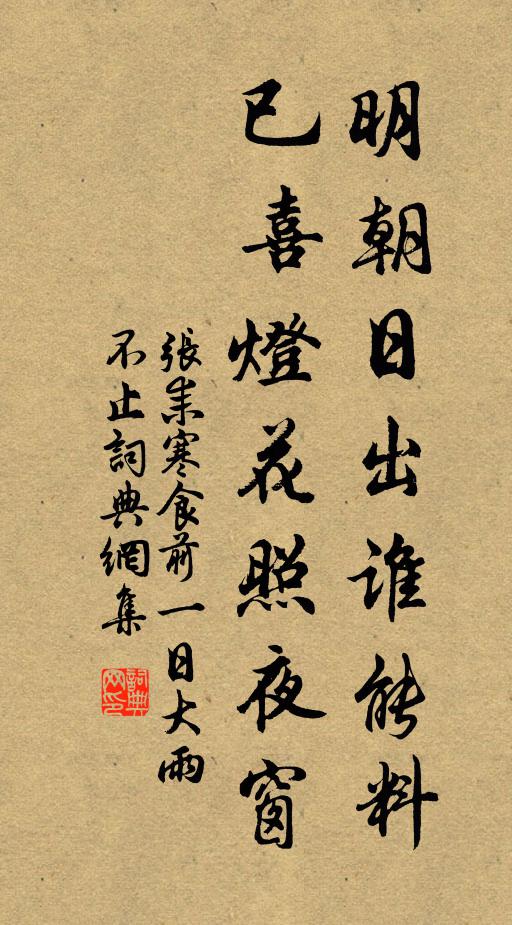 明朝日出谁能料
已喜燈花照夜窗
張耒寒食前一日大雨
不止詞典網集
詞典网印